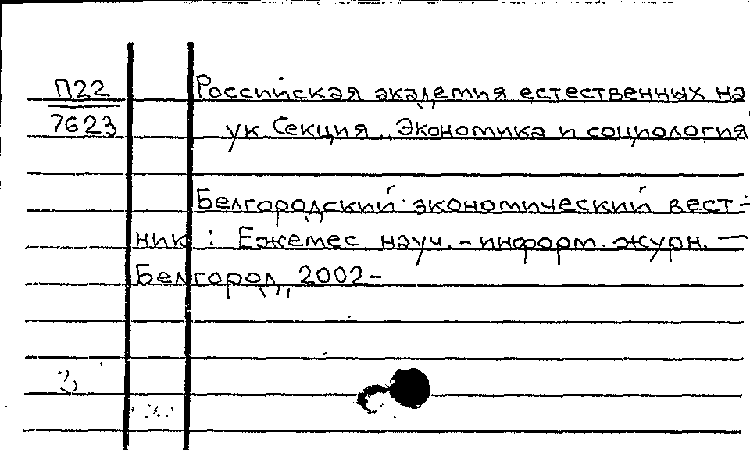 П22 Российская академия естественных на
7623 ук Секция „Экономика и социология
Белгородский экономический вест-
ник : Ежемес науч.-информ. журн. —
Белгород, 2002-